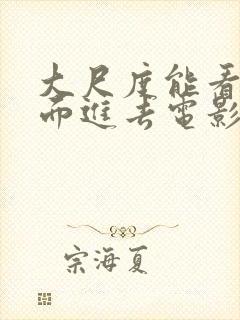 大尺度能看
而进去電影
宗海夏